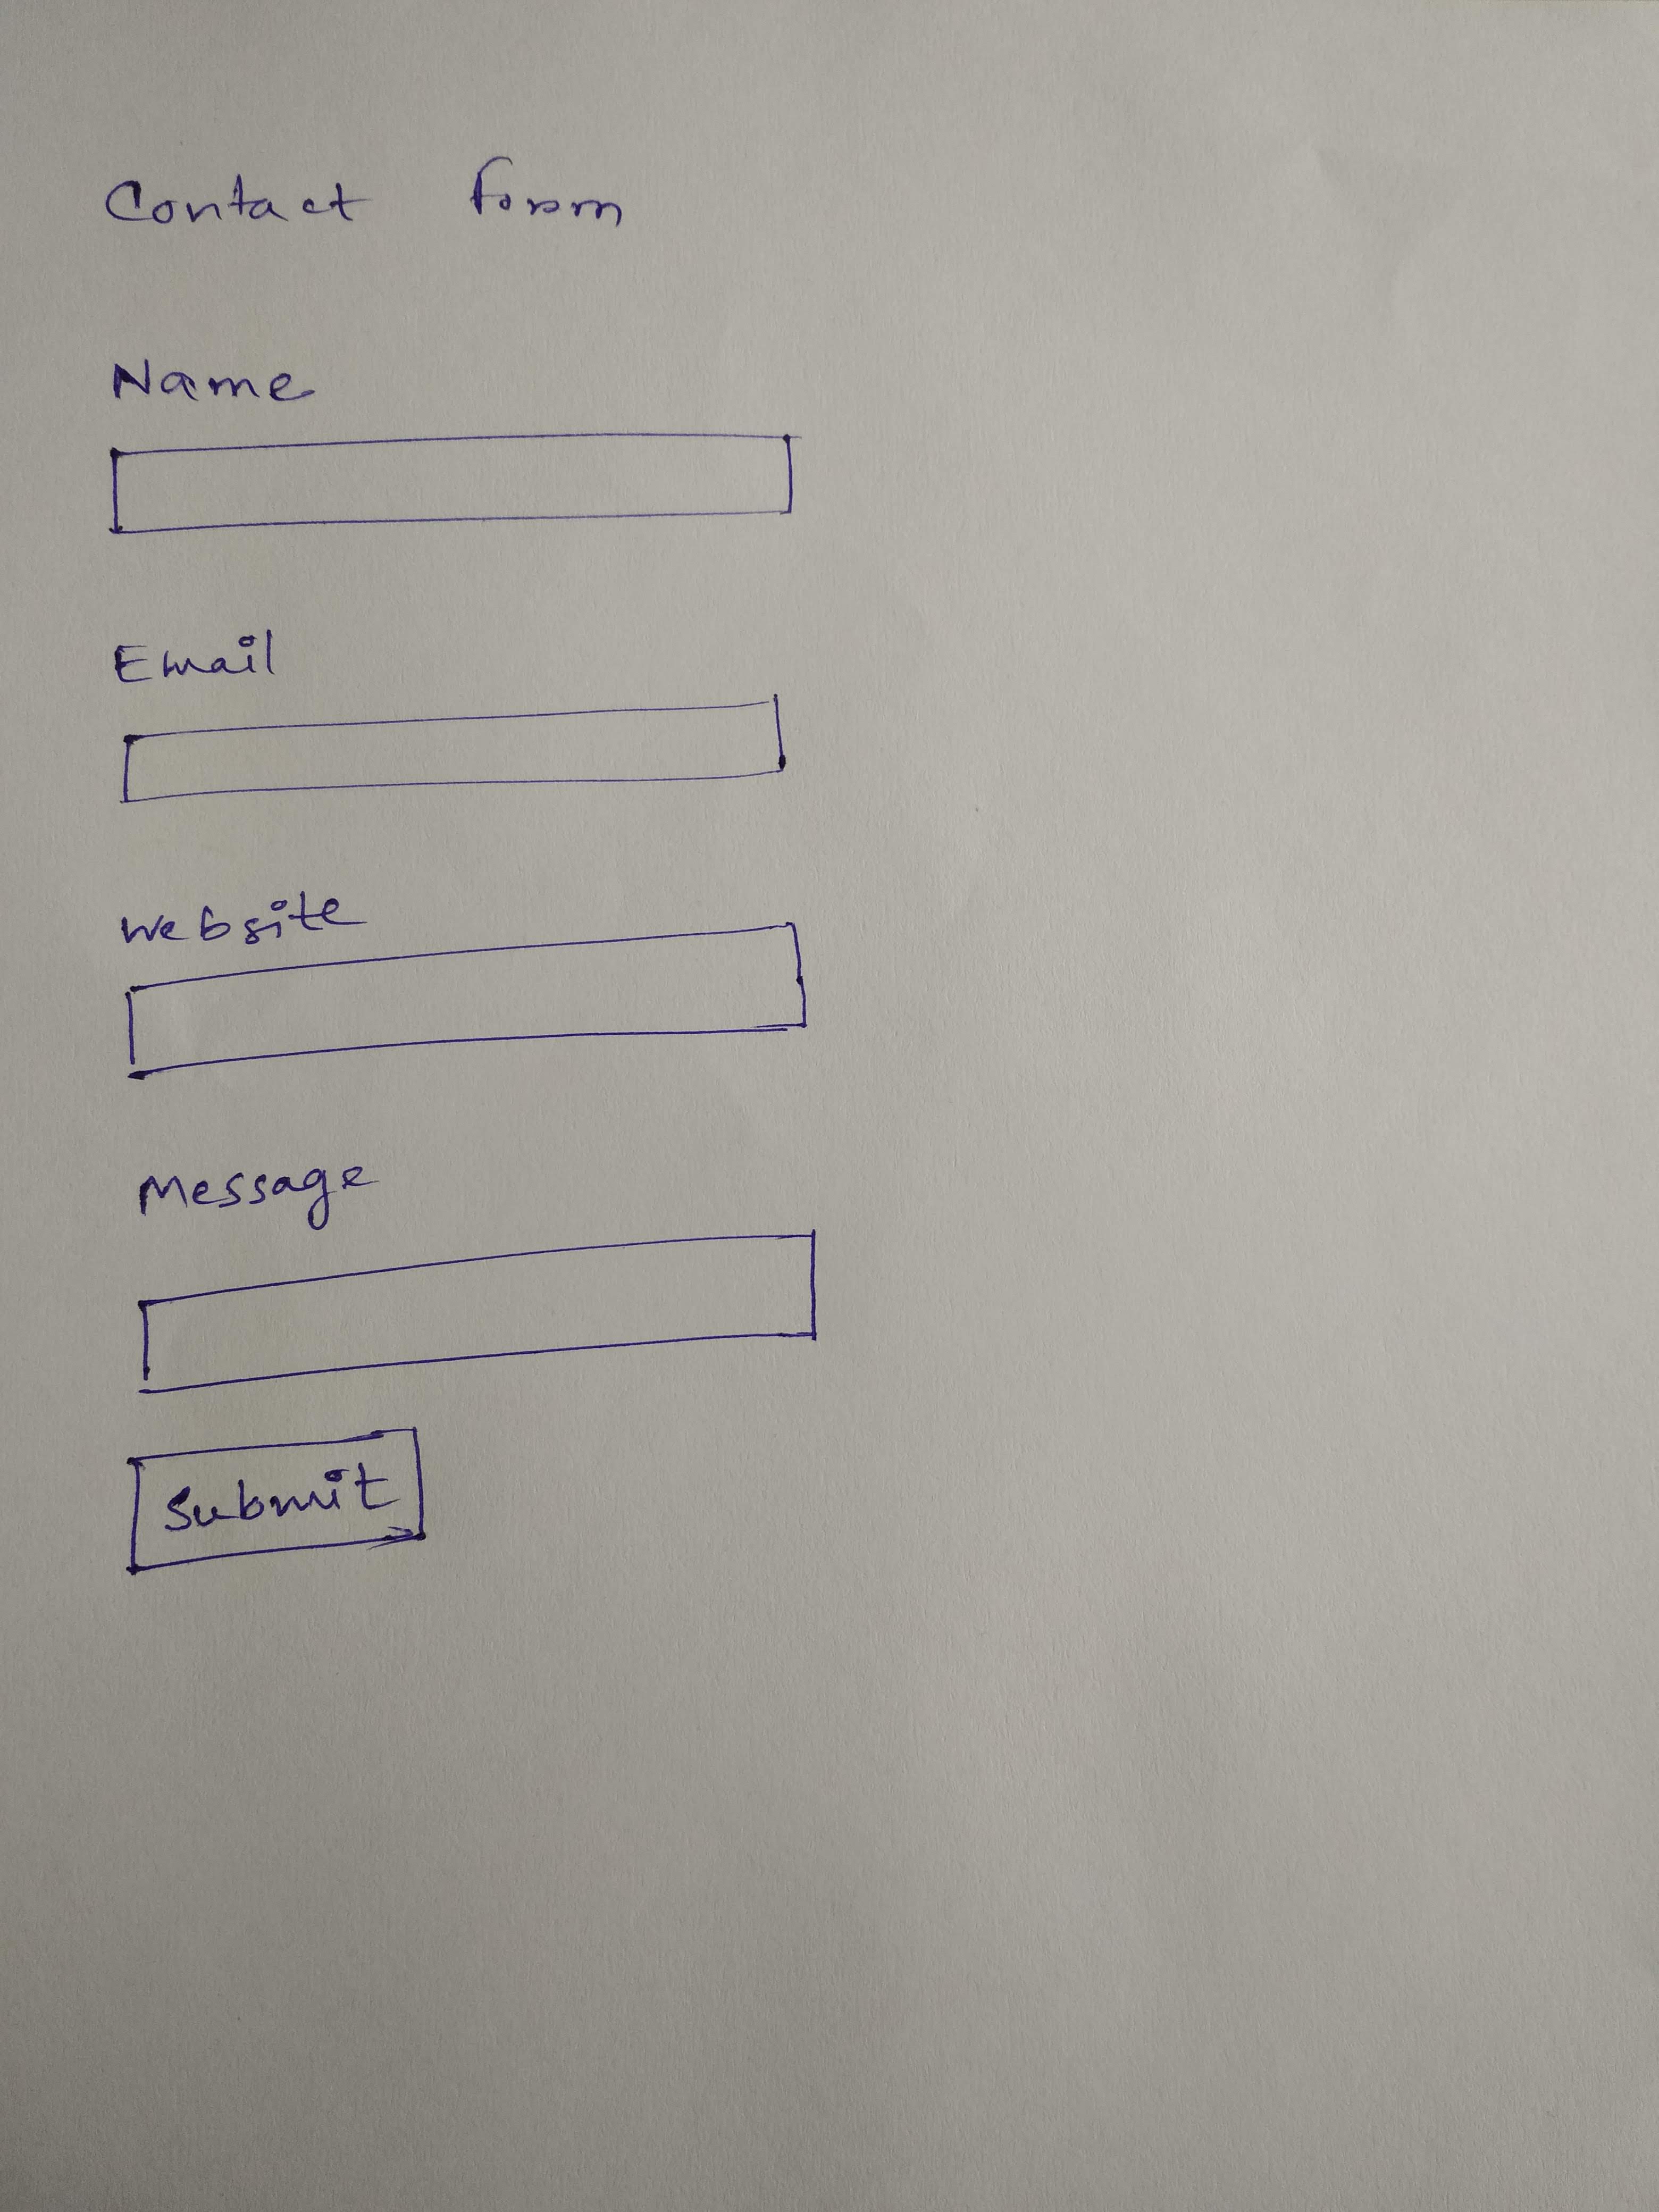 Contact form
Name
Email
Website
Message
Submit